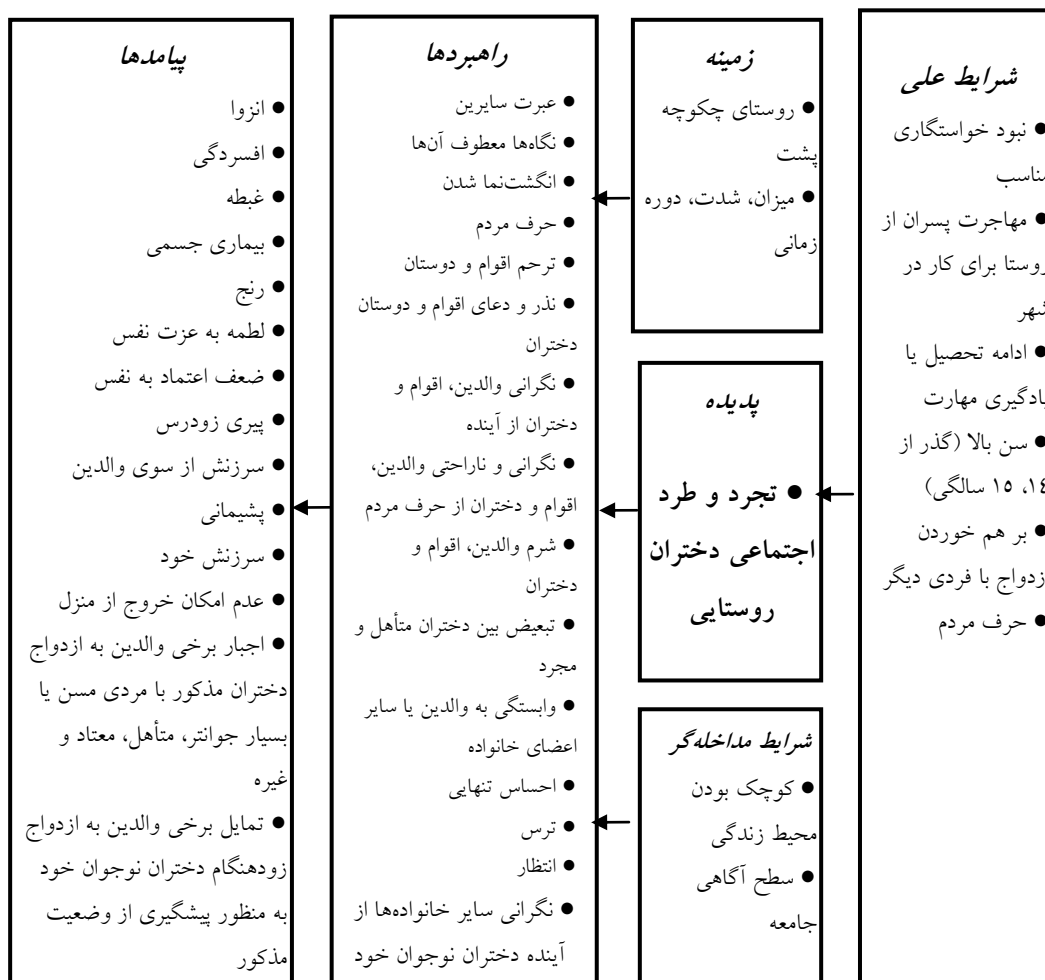 شرایط علی
● نبود خواستگاری
مناسب
● مهاجرت پسران از
روستا برای کار در
شهر
● ادامه تحصیل یا
یادگیری مهارت
● سن بالا (گذر از
۱٤، ۱٥ سالگی)
● بر هم خوردن
ازدواج با فردی دیگر
● حرف مردم
زمینه
● روستای چکوچه
پشت
● میزان، شدت، دوره
زمانی
پدیده
● تجرد و طرد
اجتماعی دختران
روستایی
شرایط مداخله‌گر
● کوچک بودن
محیط زندگی
● سطح آگاهی
جامعه
راهبردها
● عبرت سایرین
● نگاه‌ها معطوف آن‌ها
● انگشت‌نما شدن
● حرف مردم
● ترحم اقوام و دوستان
● نذر و دعای اقوام و دوستان
دختران
● نگرانی والدین، اقوام و
دختران از آینده
● نگرانی و ناراحتی والدین،
اقوام و دختران از حرف مردم
● شرم والدین، اقوام و
دختران
● تبعیض بین دختران متأهل و
مجرد
● وابستگی به والدین یا سایر
اعضای خانواده
● احساس تنهایی
● ترس
● انتظار
● نگرانی سایر خانواده‌ها از
آینده دختران نوجوان خود
پیامدها
● انزوا
● افسردگی
● غبطه
● بیماری جسمی
● رنج
● لطمه به عزت نفس
● ضعف اعتماد به نفس
● پیری زودرس
● سرزنش از سوی والدین
● پشیمانی
● سرزنش خود
● عدم امکان خروج از منزل
● اجبار برخی والدین به ازدواج
دختران مذکور با مردی مسن یا
بسیار جوانتر، متأهل، معتاد و
غیره
● تمایل برخی والدین به ازدواج
زودهنگام دختران نوجوان خود
به منظور پیشگیری از وضعیت
مذکور